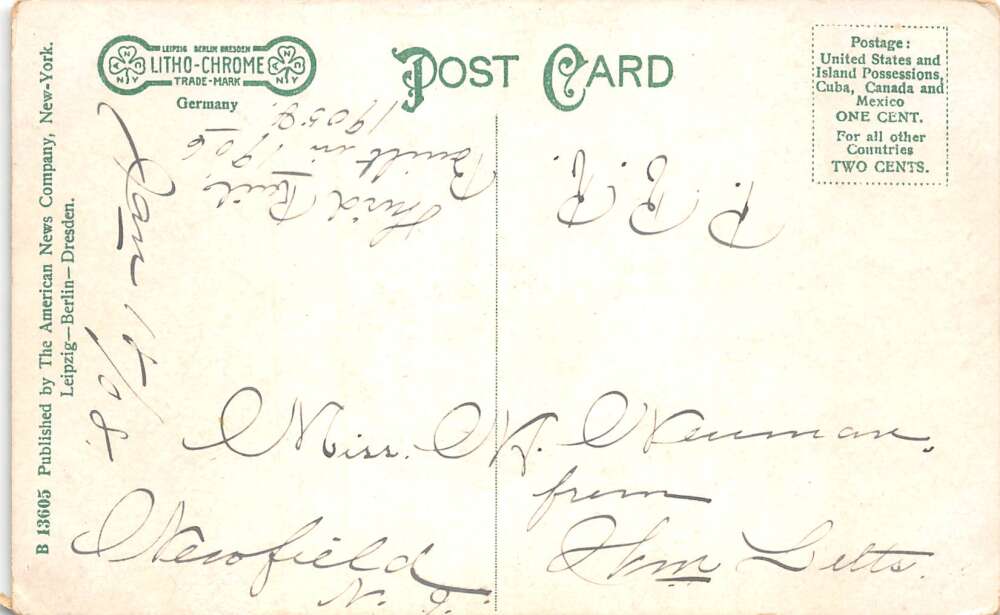 LEIPZIG BERLIN DRESDEN
LITHO-CHROME
TRADE-MARK
A N C N Y
A N C N Y
Germany
POST CARD
Postage:
United States and
Island Possessions,
Cuba, Canada and
Mexico
ONE CENT.
For all other
Countries
TWO CENTS.
B 13605 Published by The American News Company, New-York.
Leipzig—Berlin—Dresden.
Jan 15/08.
Third Rail,
Built in 1906
P. R. R.
Miss. M. Neuman.
from
Wm Letts.
Newfield
N. J.